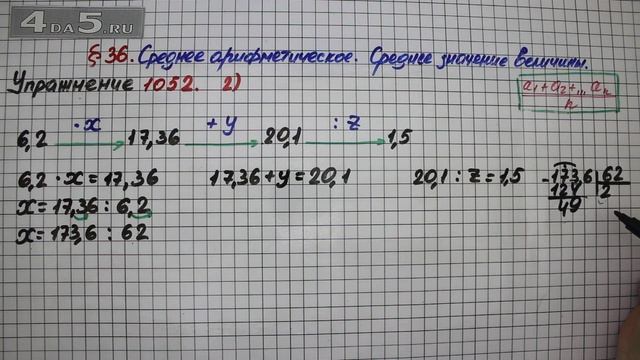 4DA5.RU
§ 36. Среднее арифметическое. Среднее значение величины.
Упражнение 1052. 2)
a₁+a₂+...aₙ
n
·x +y :z
6,2 17,36 20,1 1,5
6,2 · x = 17,36 17,36 + y = 20,1 20,1 : z = 1,5
x = 17,36 : 6,2
x = 173,6 : 62
-173,6 62
124 2
49